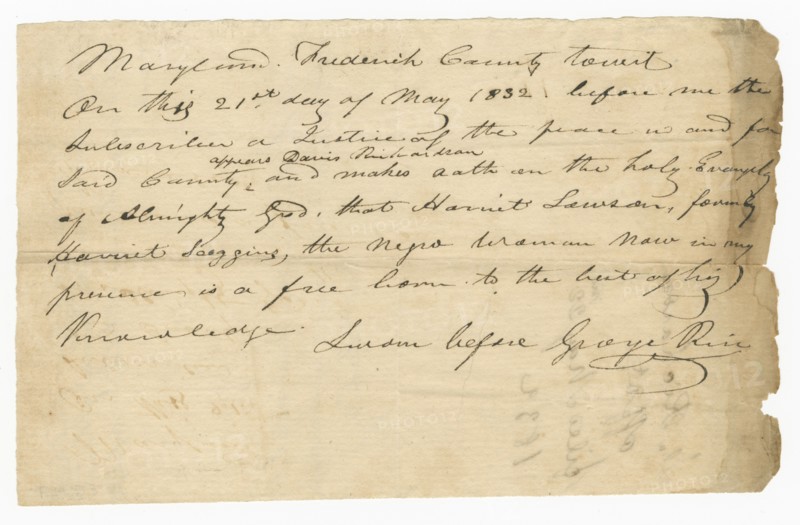 Maryland. Frederick County towit
On this 21st day of May 1832 before me the
Subscriber a Justice of the peace in and for
appears Davis Richardson
Said County, and makes oath on the holy Evangely
of Almighty God, that Harriet Lawson, formerly
Harriet Scoggins, the Negro Woman now in my
presence is a free born to the best of his
Knowledge.
Sworn before George Rice